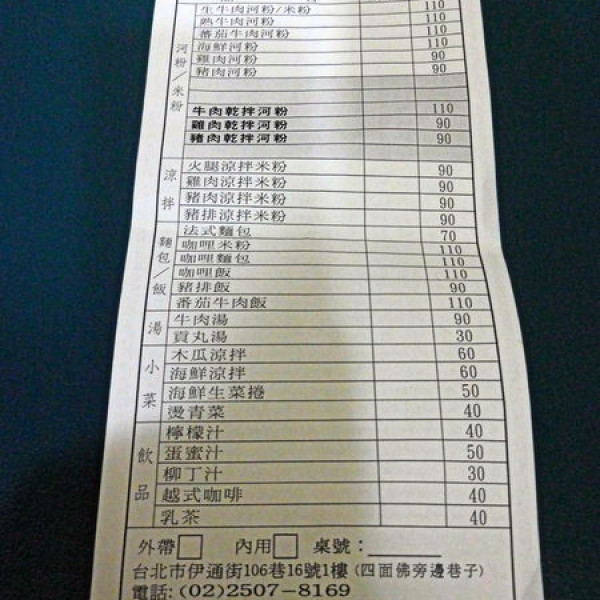 河粉/米粉
生牛肉河粉/米粉 110
熟牛肉河粉 110
蕃茄牛肉河粉 110
海鮮河粉 110
雞肉河粉 90
豬肉河粉 90
牛肉乾拌河粉 110
雞肉乾拌河粉 90
豬肉乾拌河粉 90
涼拌
火腿涼拌米粉 90
雞肉涼拌米粉 90
豬肉涼拌米粉 90
豬排涼拌米粉 90
麵包/飯
法式麵包 70
咖哩米粉 110
咖哩麵包 110
咖哩飯 110
豬排飯 90
番茄牛肉飯 110
湯
牛肉湯 90
貢丸湯 30
小菜
木瓜涼拌 60
海鮮涼拌 60
海鮮生菜捲 50
燙青菜 40
飲品
檸檬汁 40
蛋蜜汁 50
柳丁汁 30
越式咖啡 40
乳茶 40
外帶□ 內用□ 桌號：
台北市伊通街106巷16號1樓(四面佛旁邊巷子)
電話:(02)2507-8169